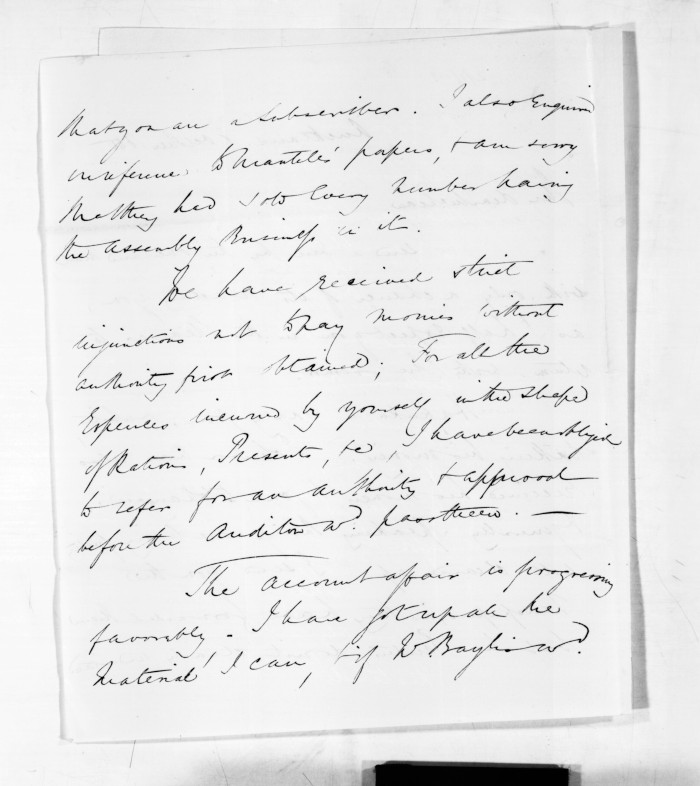 that you are a Subscriber. I also Enquired
in reference to Mantell's papers, & am sorry
that they had sold Every number having
the Assembly Business in it.
We have received strict
injunctions not to pay monies without
authority first obtained; For all the
Expences incurred by yourself in the shape
of Rations, Presents, &c I have been obliged
to refer for an authority & approval
before the Auditor wd. pass them. —
The account affair is progressing
favorably. I have got up all the
Material I can, & if Mr Baylis wd.